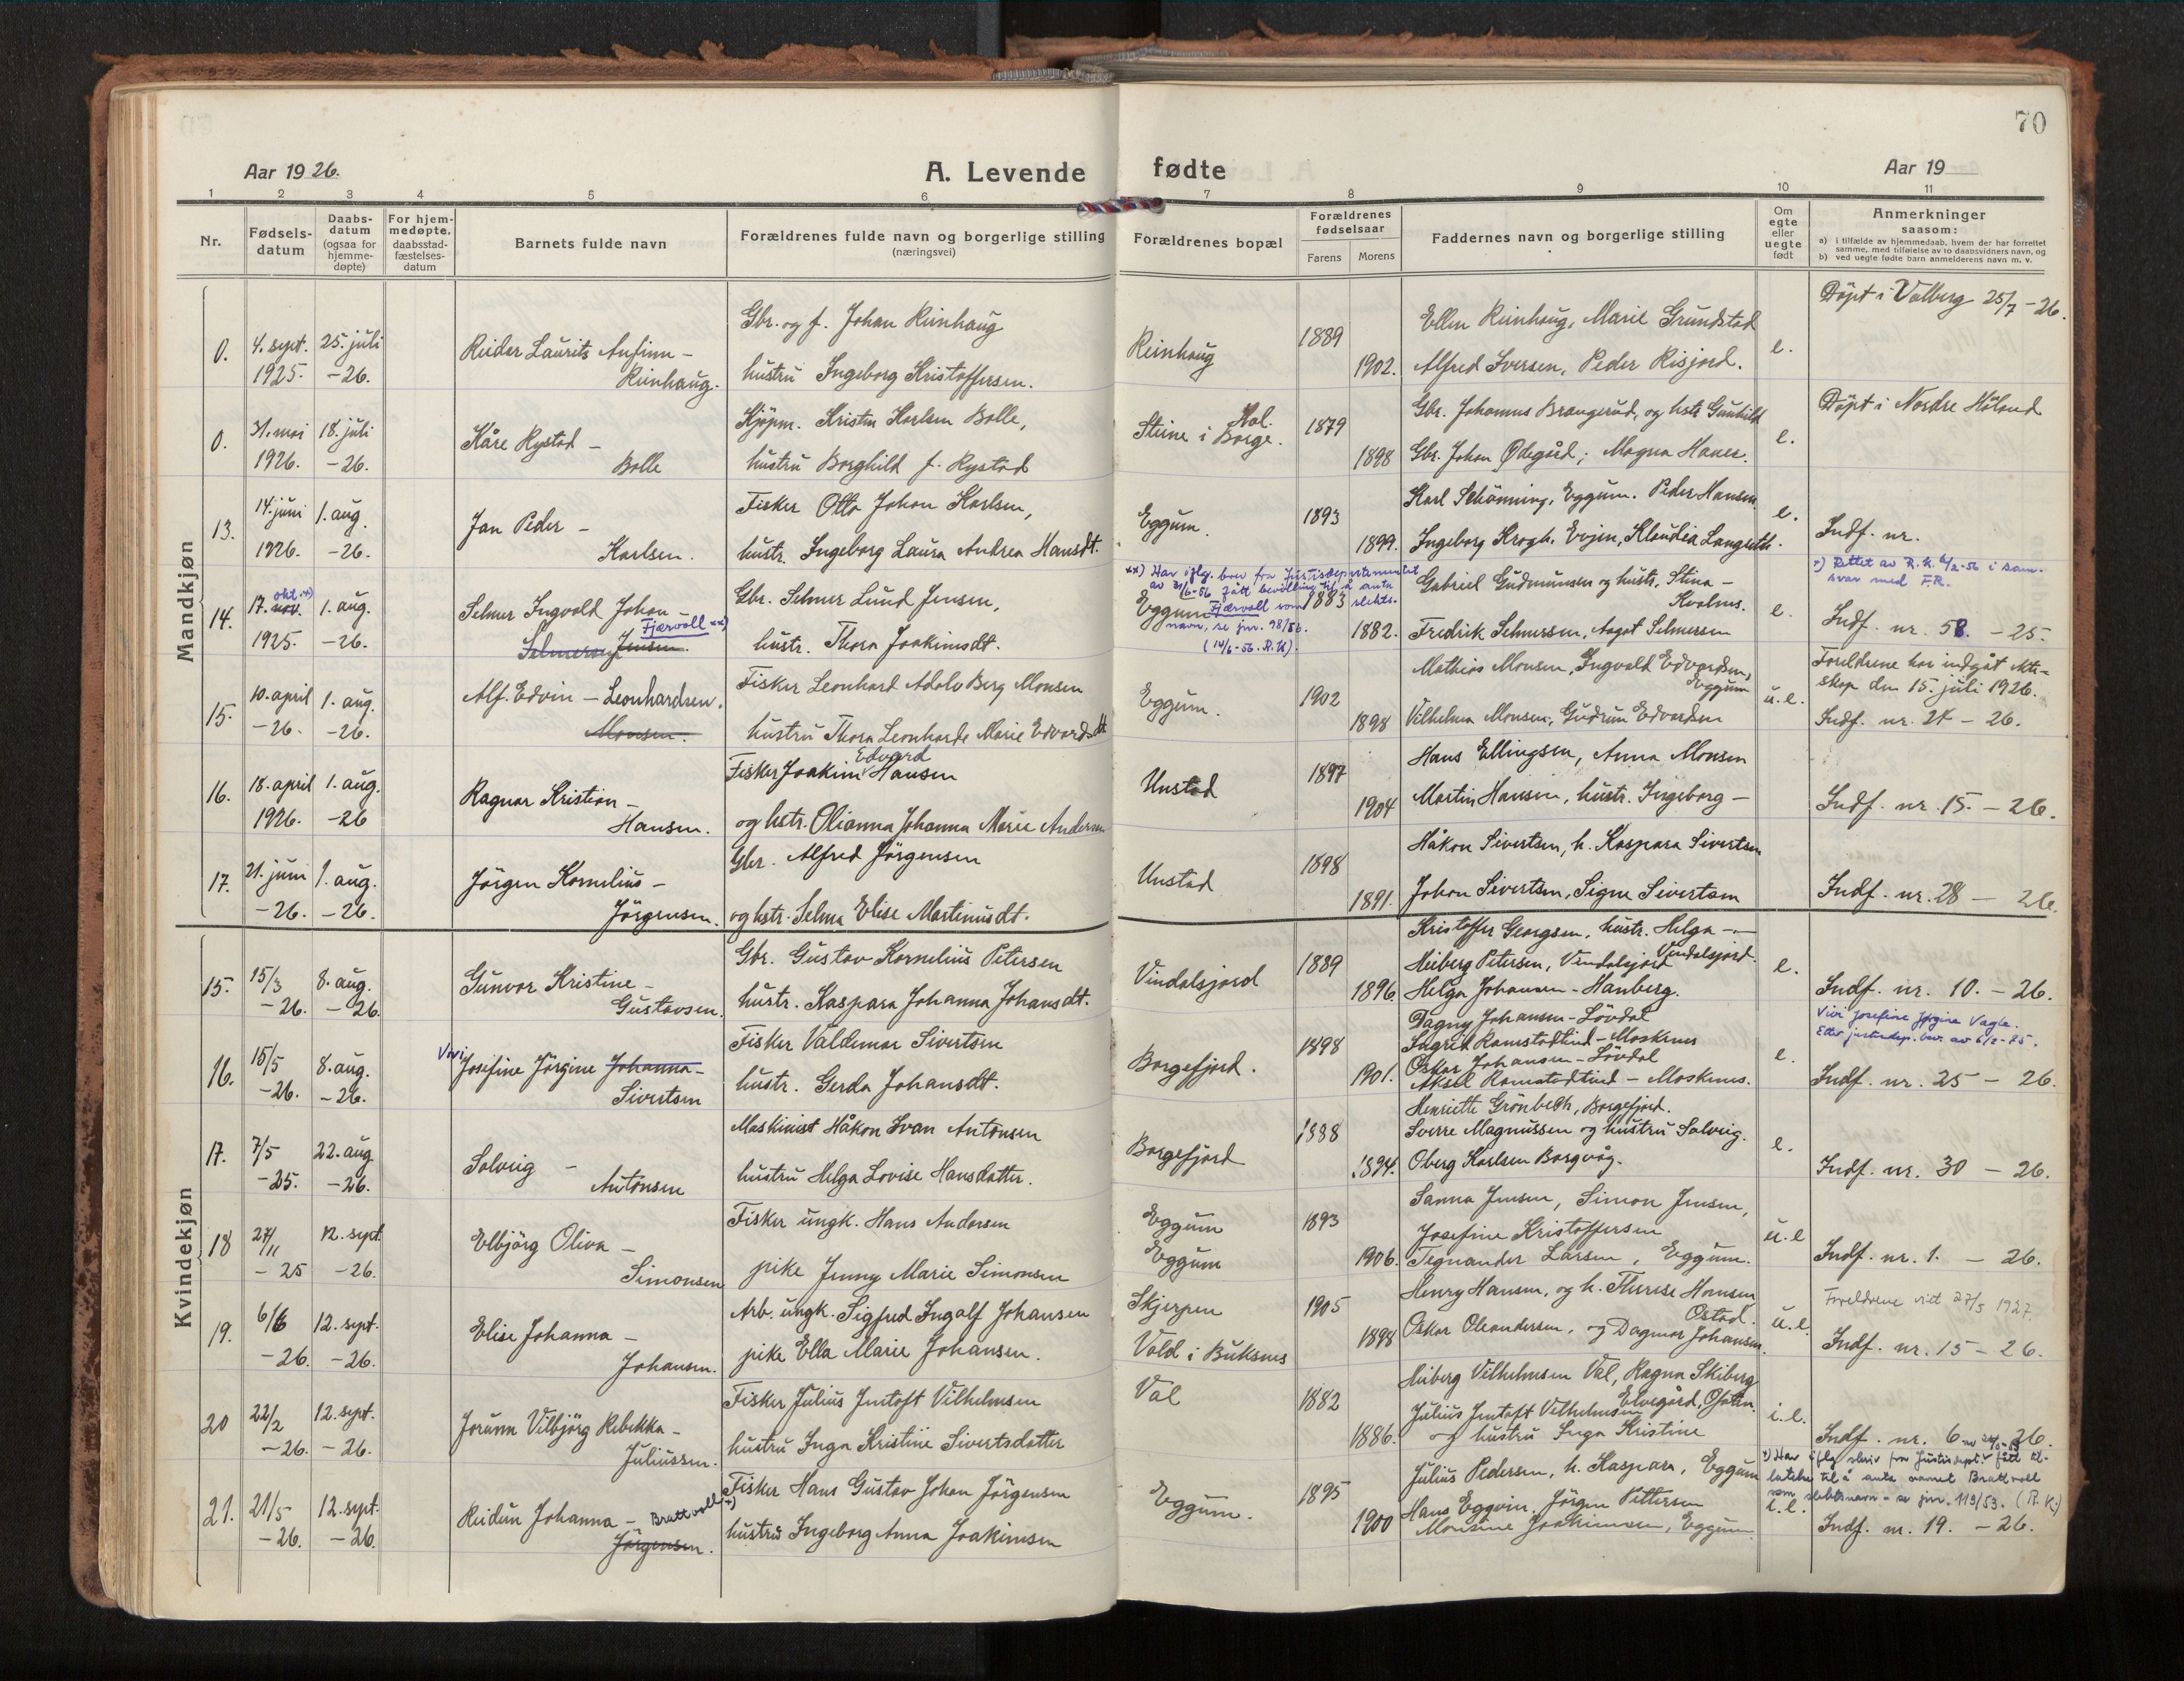 70
Aar 1926.
A. Levende fødte
Aar 19
1 2 3 4 5 6 7 8 9 10 11
Nr.
Fødsels-
datum
Daabs-
datum
(ogsaa for
hjemme-
døpte)
For hjem-
medøpte,
daabsstad-
fæstelses-
datum
Barnets fulde navn
Forældrenes fulde navn og borgerlige stilling
(næringsvei)
Forældrenes bopæl
Forældrenes
fødselsaar
Farens Morens
Faddernes navn og borgerlige stilling
Om
egte
eller
uegte
født
Anmerkninger
saasom:
a) i tilfælde av hjemmedaab, hvem der har forrettet
samme, med tilføielse av to daabsvidners navn, og
b) ved uegte fødte barn anmelderens navn m. v.
Mandkjøn
0. 4. sept. 25. juli
1925. -26.
Reidar Laurits Anfinn -
Reinhaug.
Gbr. og f. Johan Reinhaug
hustru Ingeborg Kristoffersen.
Reinhaug
1889
1902.
Ellen Reinhaug, Marie Grundstad
Alfred Iversen, Peder Risjord.
e.
Döpt i Valberg 25/7 -26.
0. 31. mai 18. juli
1926. -26.
Kåre Rystad -
Bolle
Kjöpm. Kristen Karlsen Bolle,
hustru Borghild f. Rystad
Steine i Borge.
Hol.
1879
1898
Gbr. Johannes Brangerud, og hstr Gunhild
Gbr. Johan Ødegård; Magna Hanes.
e.
Döpt i Nordre Höland
13. 14. juni 1. aug.
1926. -26.
Jan Peder -
Karlsen.
Fisker Otto Johan Karlsen,
hustr. Ingeborg Laura Andrea Hansdt.
Eggum.
1893
1899.
Karl Schönning, Eggum. Peder Hansen
Ingeborg Krogh. Evjen, Klaudia Langseth.
e.
Indf. nr.
14. 17. nov. okt. *) 1. aug.
1925. -26.
Selmer Ingvald Johan -
Selmersen Jensen. Fjærvoll xx)
Gbr. Selmer Lund Jensen,
hustr. Thora Joakimsdt.
xx) Har iflg. brev fra Justisdepartementet
av 31/6-56 fått bevilling til å anta
Fjærvoll som slekts-
navn, se jnr. 98/56.
(14/6-56. R.K)
Eggum
1883
1882.
Gabriel Gudmunsen og hustr. Stina -
Kvalnes.
Fredrik Selmersen, Aagot Selmersen
e.
*) Rettet av R.K. 6/2-56 i sam-
svar med F.R.
Indf. nr. 58. - 25.
15. 10. april 1. aug.
-26. -26.
Alf. Edvin - Leonhardsen.
Monsen.
Fisker Leonhard Adolv Berg Monsen
hustru Thora Leonharde Marie Edvardsdt
Eggum.
1902
1898
Mathias Monsen, Ingvald Edvardsen,
Eggum
Vilhelma Monsen, Gudrun Edvardsen
u.e.
Foreldrene har indgåt ekte-
skap den 15. juli 1926.
Indf. nr. 21 - 26.
16. 18. april 1. aug.
1926. -26
Ragnar Kristian -
Hansen.
Fisker Joakim Edvard Hansen
og hstr. Olianna Johanna Marie Andersen
Unstad
1897
1904
Hans Ellingsen, Anna Monsen
Martin Hansen, hustr. Ingeborg -
Indf. nr. 15. - 26.
17. 21. juni 1. aug.
-26. -26.
Jörgen Kornelius -
Jörgensen.
Gbr. Alfred Jörgensen
og hstr. Selma Elise Martinusdt.
Unstad
1898
1891.
Håkon Sivertsen, h. Kaspara Sivertsen
Johan Sivertsen, Signe Sivertsen
Indf. nr. 28 - 26.
Kvindekjøn
15. 15/3 8. aug.
-26. -26.
Gunvor Kristine -
Gustavsen.
Gbr. Gustav Kornelius Petersen
hustr. Kaspara Johanna Johansdt.
Vindalsjord
1889
1896.
Kristoffer Georgsen, hustr. Helga -
Vindalsjord.
Meiberg Petersen, Vindalsjord
Helga Johansen - Hanberg.
e.
Indf. nr. 10. - 26.
16. 15/5 8. aug.
-26. -26.
Vivi Josefine Jörgine Johanna -
Sivertsen
Fisker Valdemar Sivertsen
hustr. Gerda Johansdt.
Borgefjord.
1898
1901.
Dagny Johansen - Lövdal
Ingrid Ramstadtind - Moskenes
Oskar Johansen - Lövdal
Aksel Ramstadtind - Moskenes.
e.
Vivi Josefine Jørgine Vagle.
Etter justisdep. bev. av 6/2-75.
Indf. nr. 25 - 26.
17. 7/5 22. aug.
-25. -26.
Solveig -
Antonsen
Maskinist Håkon Ivan Antonsen
hustru Helga Lovise Hansdatter.
Borgefjord
1888
1894.
Henriette Grönbech, Borgefjord.
Sverre Magnussen og hustru Solveig.
Oberg Karlsen Borgvåg.
e.
Indf. nr. 30 - 26.
18 27/11 12. sept
-25 -26.
Elbjörg Oliva -
Simonsen
Fisker ungk. Hans Andersen
pike Jenny Marie Simonsen
Eggum
Eggum
1893
1906.
Sanna Jensen, Simon Jensen,
Josefine Kristoffersen
Tegnander Larsen, Eggum.
u.e
Indf. nr. 1. - 26.
19. 6/6 12. sept.
-26. -26.
Elise Johanna -
Johansen.
Arb. ungk. Sigfred Ingolf Johansen
pike Ella Marie Johansen.
Skjerpen
Vold i Buksnes
1905
1898
Henry Hansen, og h. Therese Hansen
Ostad.
Oskar Oleandersen, og Dagmar Johansen.
u.e.
Foreldrene viet 27/3 1927.
Indf. nr. 15 - 26.
20 22/2 12. sept.
-26. -26.
Jorunn Vilbjörg Rebekka -
Juliussen.
Fisker Julius Jentoft Vilhelmsen
hustru Inga Kristine Sivertsdatter
Val
1882
1886.
Meiberg Vilhelmsen Val, Ragna Skiberg
Elvegård, Ofoten.
Julius Jentoft Vilhelmsen
og hustru Inga Kristine
Indf. nr. 6 26.
21. 21/5 12. sept.
-26. -26.
Reidun Johanna - Brattvoll *)
Jörgensen.
Fisker Hans Gustav Johan Jörgensen
hustru Ingeborg Anna Joakimsen
Eggum.
1895
1900
Julius Pedersen, h. Kaspara, Eggum
Hans Eggvin, Jörgen Pettersen
Monsine Joakimsen, Eggum
*) Har iflg. skriv fra Justisdept. fått til-
latelse til å anta navnet Brattvoll
som slektsnavn - se jnr. 119/53. (R.K.)
Indf. nr. 19. - 26.